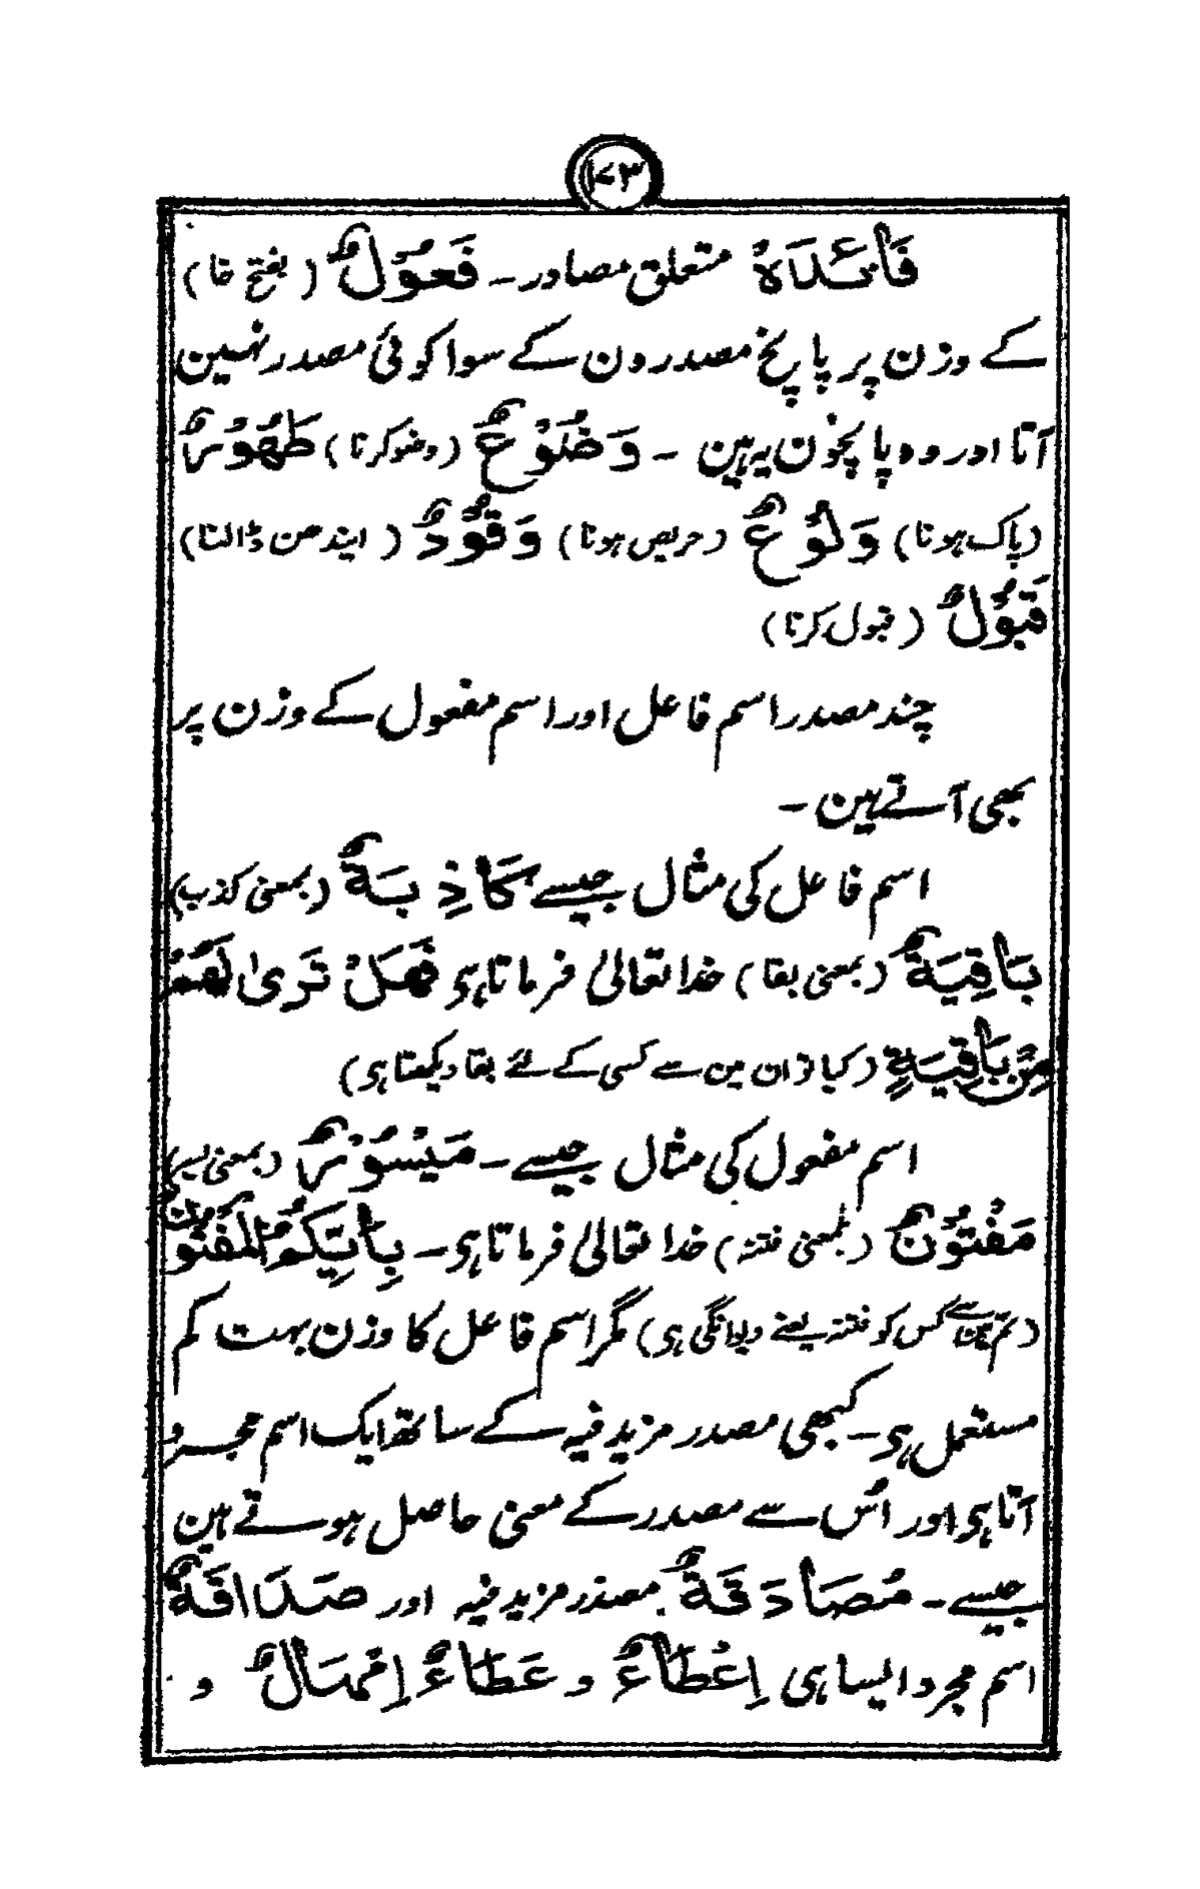 ۱۷۳
فَائِدَہْ متعلق مصادر ۔ فَعُوْلٌ (بفتح فا)
کے وزن پر پانچ مصدرون کے سوا کوئی مصدر نہین
آتا اور وہ پانچون یہ ہین ۔ وَضُوْءٌ (وضو کرنا) طَهُوْرٌ
(پاک ہونا) وَلُوْعٌ (حریص ہونا) وَقُوْدٌ (ایندھن ڈالنا)
قَبُوْلٌ (قبول کرنا)
چند مصدر اسم فاعل اور اسم مفعول کے وزن پر
بھی آتے ہین ۔
اسم فاعل کی مثال جیسے كَاذِبَةٌ (بمعنی کذب)
بَاقِيَةٌ (بمعنی بقا) خدا تعالیٰ فرماتا ہی فَهَلْ تَرٰى لَهُمْ
مِنْ بَاقِيَةٍ (کیا تو ان مین سے کسی کے لئے بقا دیکھتا ہی)
اسم مفعول کی مثال جیسے ۔ مَيْسُوْرٌ (بمعنی یسر)
مَفْتُوْنٌ (بمعنی فتنہ) خدا تعالیٰ فرماتا ہی ۔ بِاَيِّكُمُ الْمَفْتُوْنُ
(تم مین سے کس کو فتنہ یعنے دیوانگی ہی) مگر اسم فاعل کا وزن بہت کم
مستعمل ہی ۔ کبھی مصدر مزید فیہ کے ساتھ ایک اسم مجرد
آتا ہی اور اُس سے مصدر کے معنی حاصل ہوتے ہین
جیسے ۔ مُصَادَقَةٌ مصدر مزید فیہ اور صَدَاقَةٌ
اسم مجرد ایسا ہی اِعْطَاءٌ و عَطَاءٌ اِمْهَالٌ و